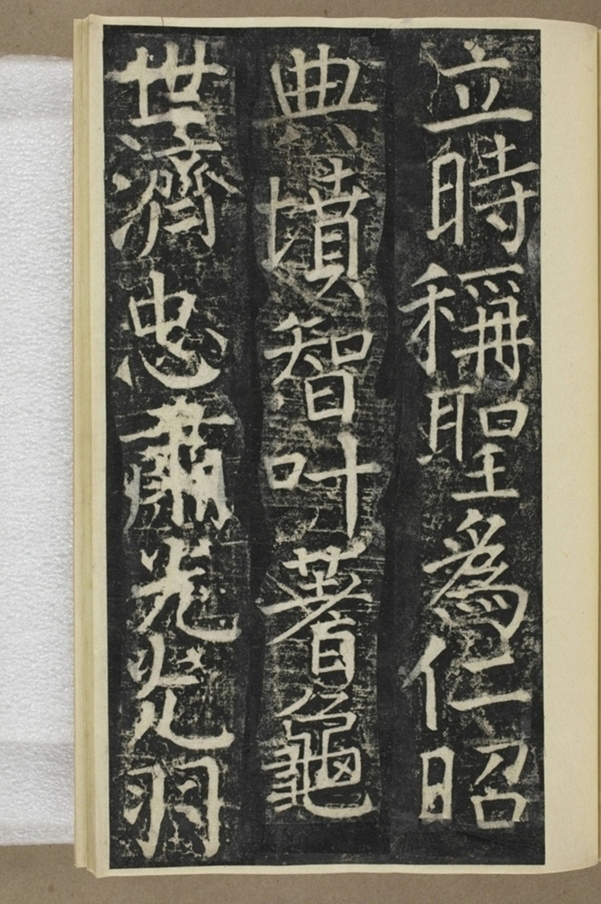 立時稱聖爲仁昭
典墳智叶蓍龜
世濟忠肅光光羽